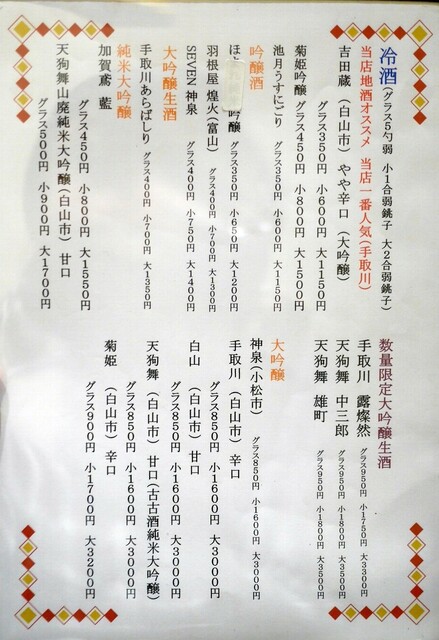 冷酒(グラス5勺弱 小1合弱銚子 大2合弱銚子)
当店地酒オススメ 当店一番人気(手取川)
吉田蔵 (白山市) やや辛口 (大吟醸)
グラス350円 小600円 大1150円
菊姫吟醸 グラス450円 小800円 大1500円
池月うすにごり グラス350円 小600円 大1150円
吟醸酒
ほ 吟醸 グラス350円 小650円 大1200円
羽根屋 煌火(富山) グラス400円 小700円 大1300円
SEVEN 神泉 グラス400円 小750円 大1400円
大吟醸生酒
手取川あらばしり グラス400円 小700円 大1350円
純米大吟醸
加賀鳶 藍
グラス450円 小800円 大1550円
天狗舞山廃純米大吟醸(白山市) 甘口
グラス500円 小900円 大1700円
数量限定大吟醸生酒
手取川 露燦然 グラス950円 小1750円 大3300円
天狗舞 中三郎 グラス950円 小1800円 大3500円
天狗舞 雄町 グラス950円 小1800円 大3500円
大吟醸
神泉(小松市) グラス850円 小1600円 大3000円
手取川 (白山市) 辛口
グラス850円 小1600円 大3000円
白山 (白山市) 甘口
グラス850円 小1600円 大3000円
天狗舞 (白山市) 甘口(古古酒純米大吟醸)
グラス850円 小1600円 大3000円
菊姫 (白山市) 辛口
グラス900円 小1700円 大3200円